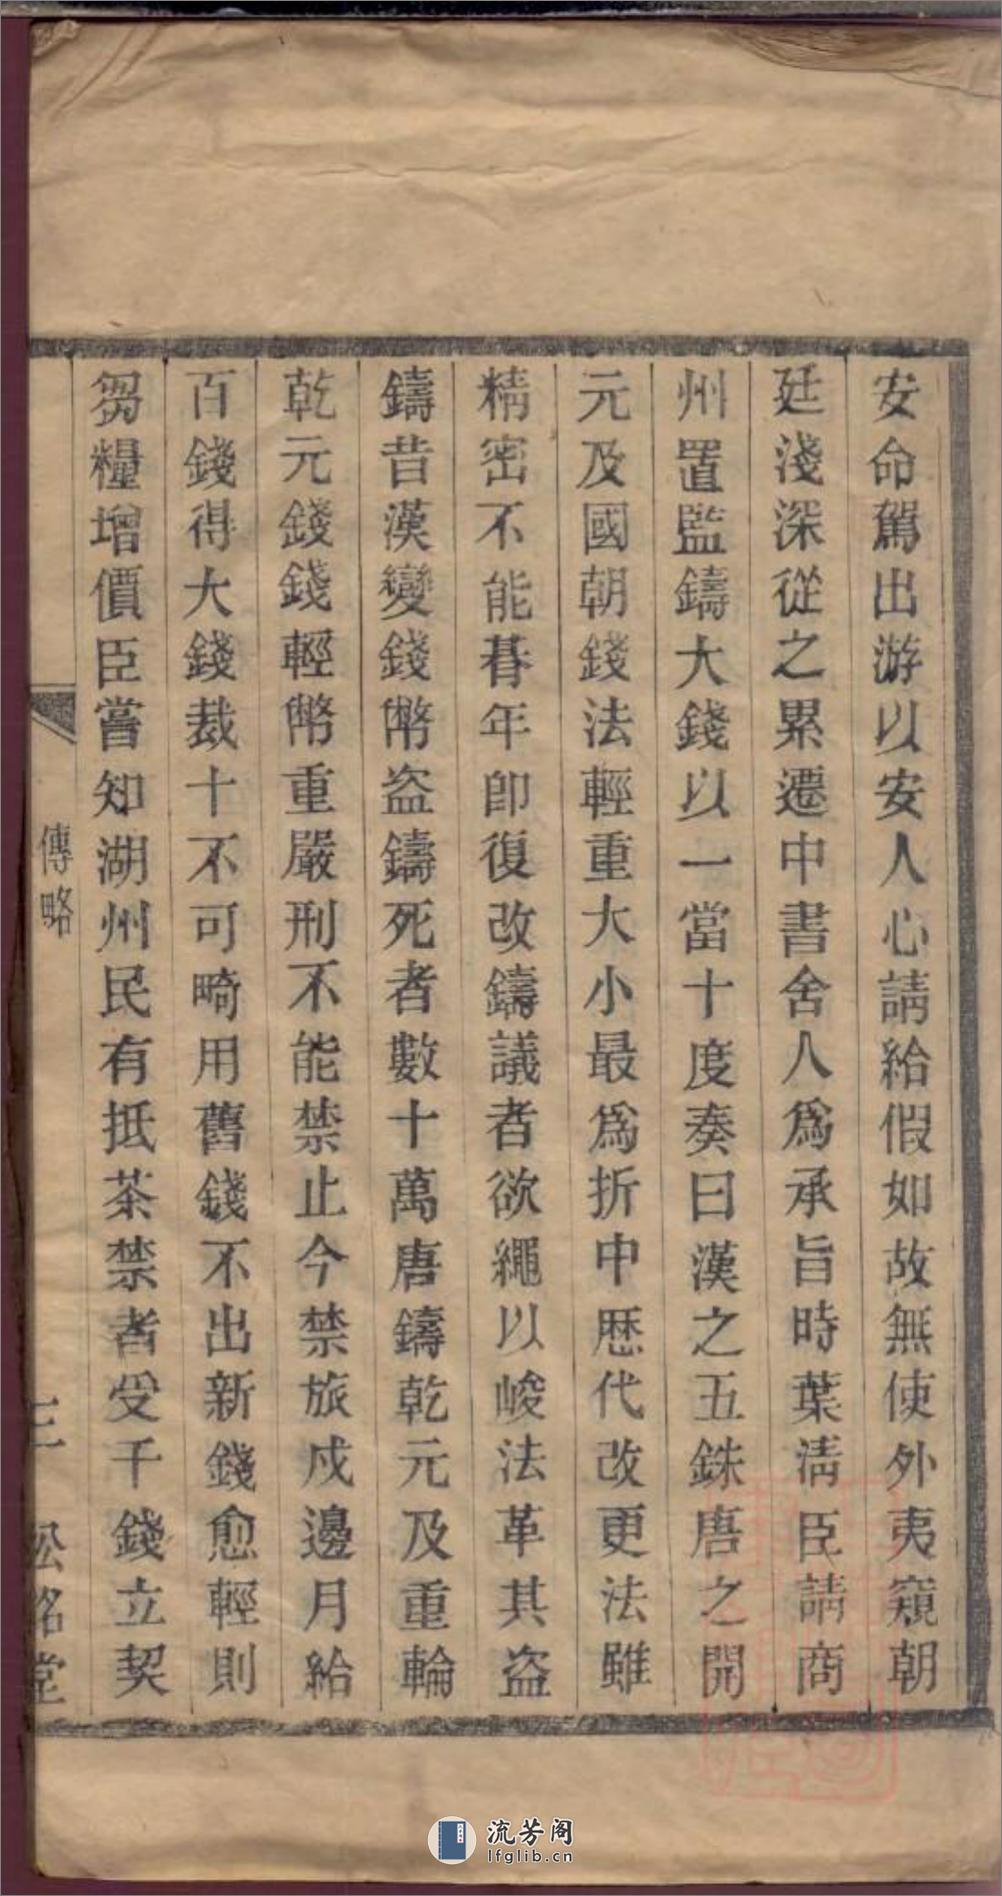 安命駕出游以安人心請給假如故無使外夷窺朝
廷淺深從之累遷中書舍人爲承旨時葉淸臣請商
州置監鑄大錢以一當十度奏曰漢之五銖唐之開
元及國朝錢法輕重大小最爲折中歴代改更法雖
精密不能朞年卽復改鑄議者欲繩以峻法革其盜
鑄昔漢變錢幣盜鑄死者數十萬唐鑄乾元及重輪
乾元錢錢輕幣重嚴刑不能禁止今禁旅戍邊月給
百錢得大錢裁十不可畸用舊錢不出新錢愈輕則
芻糧增價臣嘗知湖州民有抵茶禁者受千錢立契
傳略
三
松銘堂
流芳阁
lfglib.cn